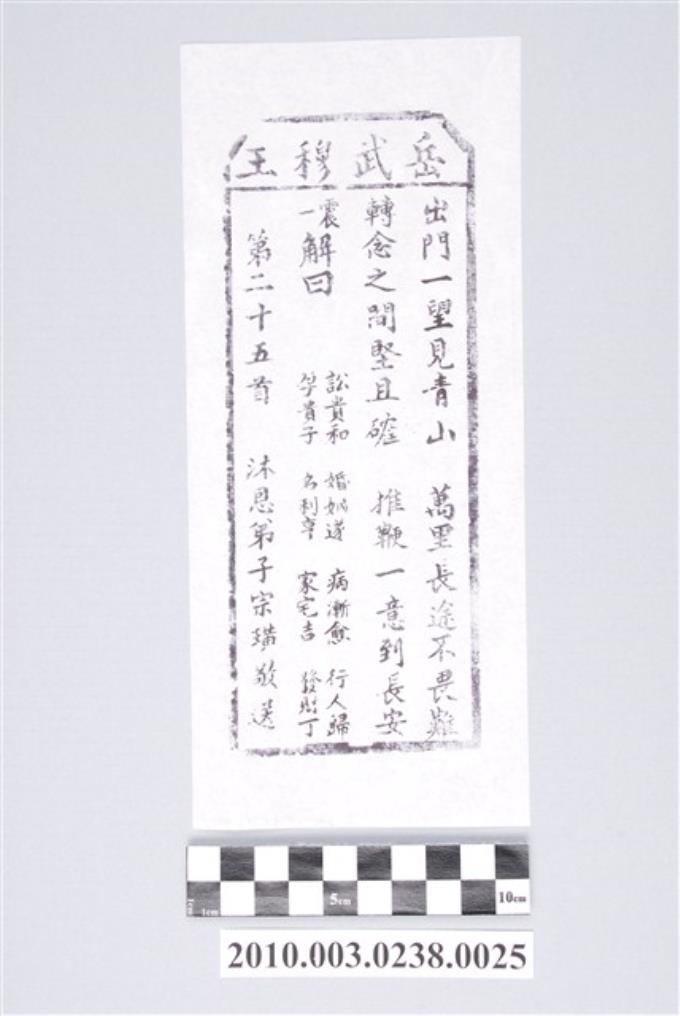 岳武穆王
出門一望見青山　萬里長途不畏難
轉念之間堅且確　推鞭一意到長安
震一
解曰
訟貴和　婚姻遂　病漸愈　行人歸
孕貴子　名利亨　家宅吉　發財丁
第二十五首　沐恩弟子宗璜敬送
5cm
10cm
1cm
1cm
2010.003.0238.0025